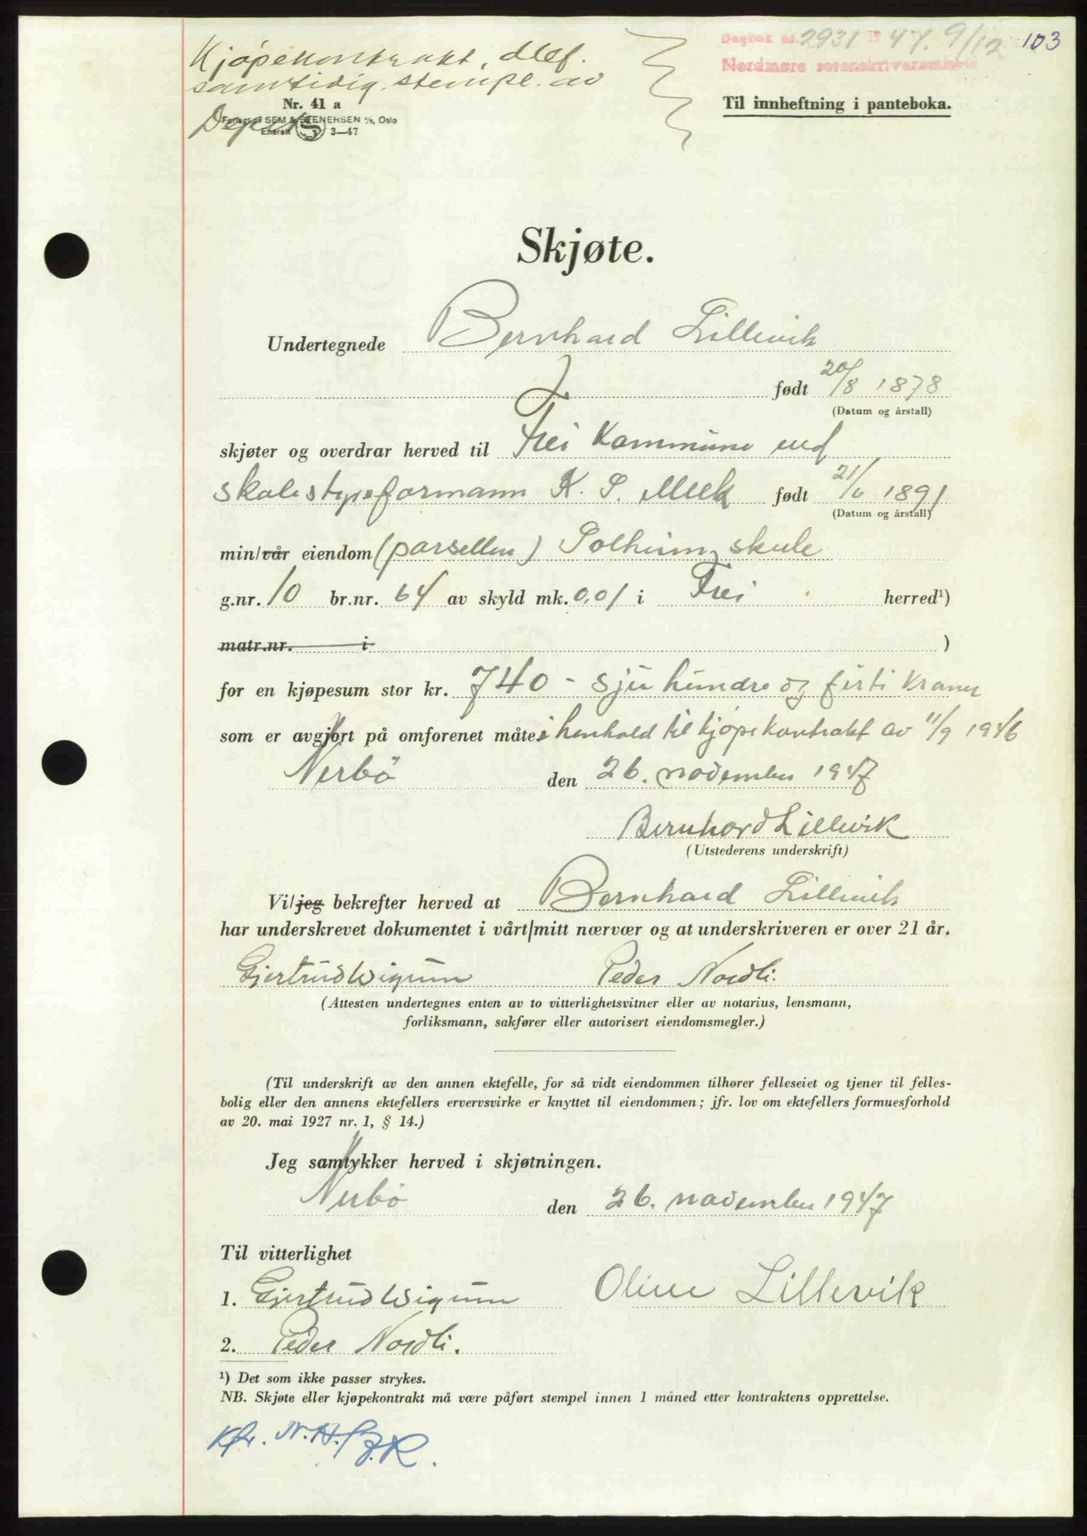 Kjøpekontrakt, dlef.
samtidig. stempl. av
Dagbok nr. 2931 19 47. 9/12 103
Nordmøre sorenskriverembete
Nr. 41 a
Forlagt af SEM & STENERSEN A/S, Oslo
Enerett S 3—47
Til innheftning i panteboka.
Skjøte.
Undertegnede Bernhard Lillevik
født 20/8 1878
(Datum og årstall)
skjøter og overdrar herved til Frei Kommune ved
skolestyreformann K. P. Meek født 21/6 1891
(Datum og årstall)
min/vår eiendom (parsellen) Solheim skule
g.nr. 10 br.nr. 64 av skyld mk. 0,01 i Frei herred¹)
matr.nr. i )
for en kjøpesum stor kr. 740 - sju hundre og førti kroner
som er avgjort på omforenet måte i henhold til kjøpekontrakt av 11/9 1946
Nerbö den 26. november 1947
Bernhard Lillevik
(Utstederens underskrift)
Vi/jeg bekrefter herved at Bernhard Lillevik
har underskrevet dokumentet i vårt/mitt nærvær og at underskriveren er over 21 år.
Gjertrud Wigum Peder Nordli.
(Attesten undertegnes enten av to vitterlighetsvitner eller av notarius, lensmann,
forliksmann, sakfører eller autorisert eiendomsmegler.)
(Til underskrift av den annen ektefelle, for så vidt eiendommen tilhører felleseiet og tjener til felles-
bolig eller den annens ektefellers ervervsvirke er knyttet til eiendommen; jfr. lov om ektefellers formuesforhold
av 20. mai 1927 nr. 1, § 14.)
Jeg samtykker herved i skjøtningen.
Nerbö den 26. november 1947
Til vitterlighet
1. Gjertrud Wigum Oline Lillevik
2. Peder Nordli.
¹) Det som ikke passer strykes.
NB. Skjøte eller kjøpekontrakt må være påført stempel innen 1 måned etter kontraktens opprettelse.
Kfr. N.H.